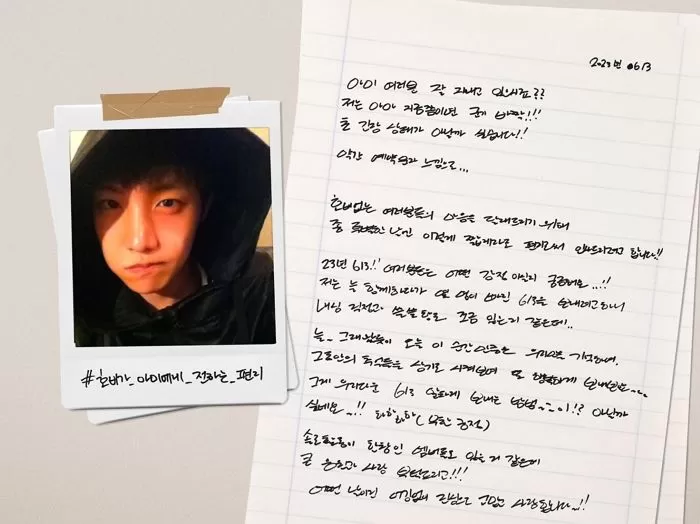 2023년 0613
아미 여러분 잘 지내고 있나요??
저는 아마 지금쯤이면 군기 바짝!!!
초 긴장 상태가 아닐까 싶습니다!!
약간 예약문자 느낌으로...
호비없는 여러분들의 마음을 달래드리기 위해
좀 특별한 날인 이렇게 짧게라도 편지로써 인사드리려고 합니다!!
23년 613!! 여러분들은 어떤 감정이실지 궁금해요..!!
저는 늘 함께하다가 또 멀리 떨어진 613을 보내려고하니
내심 걱정과 씁쓸함도 조금 있는거 같은데..
늘_ 그래왔듯이 오늘 이 순간만큼은 우리다운 기억하며,
그동안의 추억들을 상기 시켜보며 또 행복하게 보내봐요~~
그게 우리다운 613 알차게 보내는 방법~~이!? 아닐까
싶네요..!! 하하하(무한 긍정)
솔로활동이 한창인 멤버들도 있는거 같은데
큰 응원과 사랑 부탁드리고!!!
어떤 날이던 어김없이 진심으로 고맙고 사랑합니다..!!
#호비가_아미에게_전하는_편지